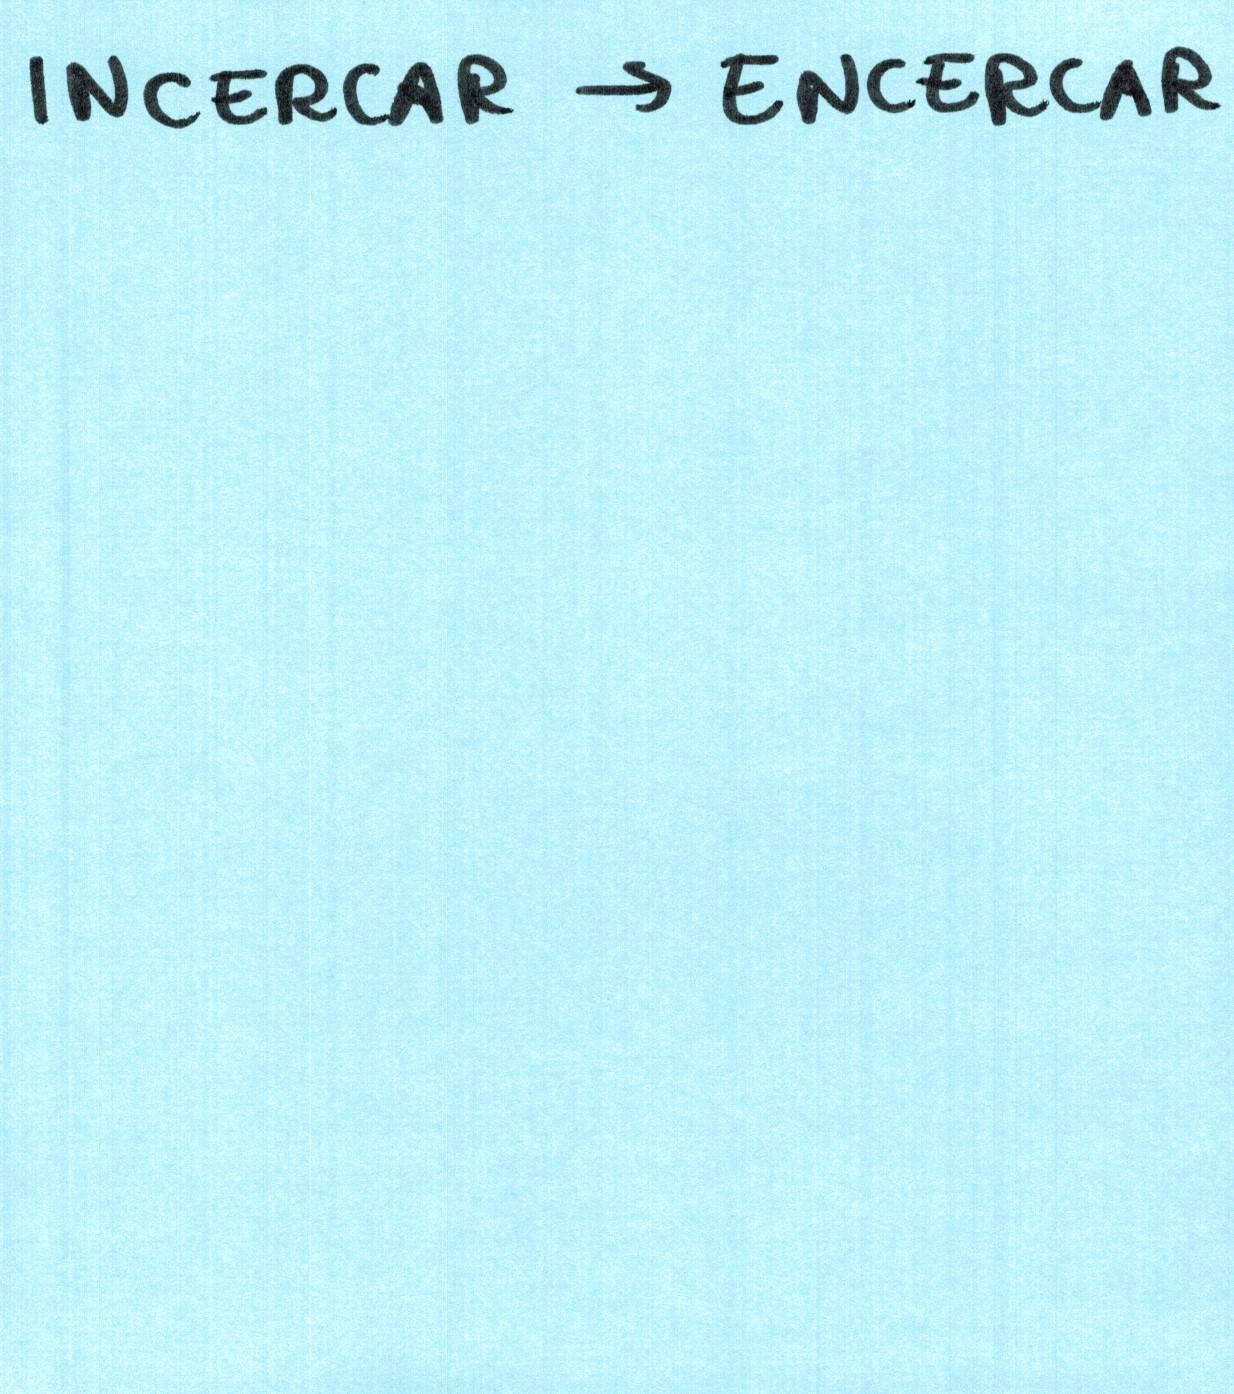 INCERCAR → ENCERCAR